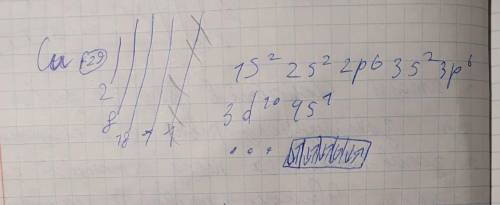 Cu +29
2
8
18
1
1S² 2S² 2p6 3S² 3p⁶
3d¹⁰ 4S¹
...